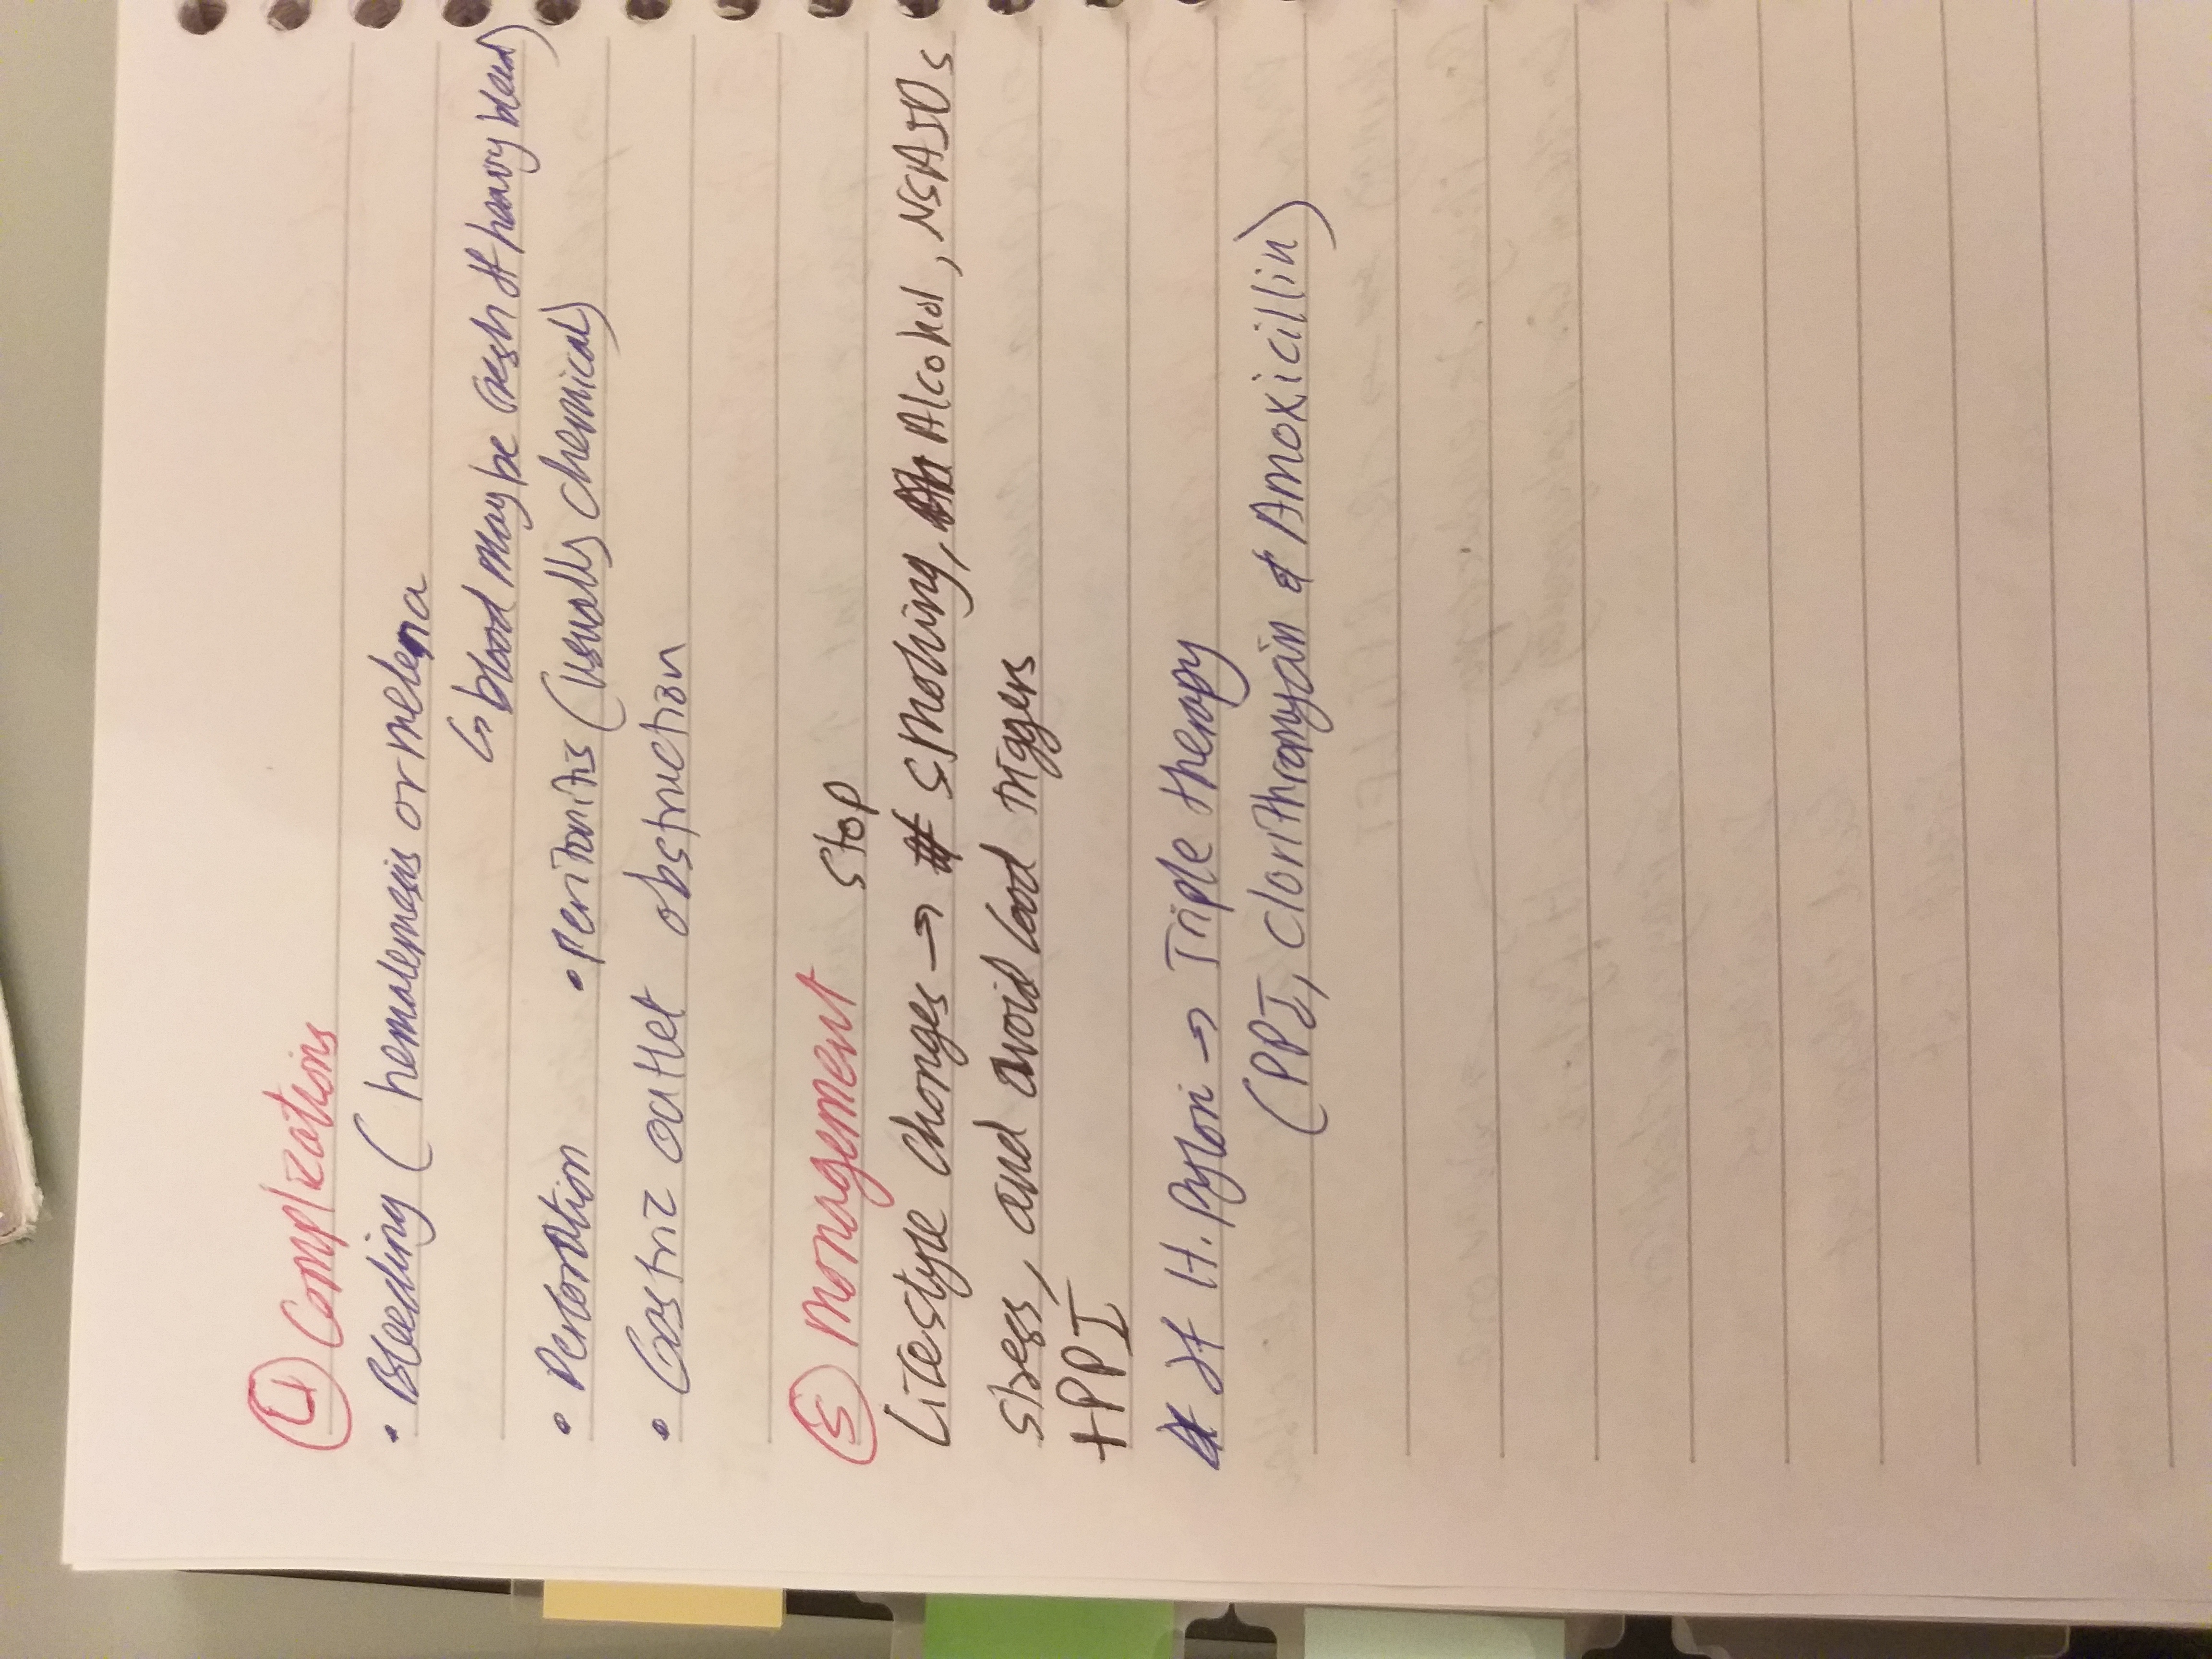 ④ Complications
• Bleeding ( hematemesis or melena
↳ blood may be fresh if heavy bleed)
• Perforation • Peritonitis (usually chemical)
• Gastric outlet obstruction
⑤ Management
stop
Lifestyle changes → smoking, Alcohol, NSAIDs
stress, and avoid food triggers
+PPI
* If H. Pylori → Triple therapy
(PPI, Clarithromycin & Amoxicillin)